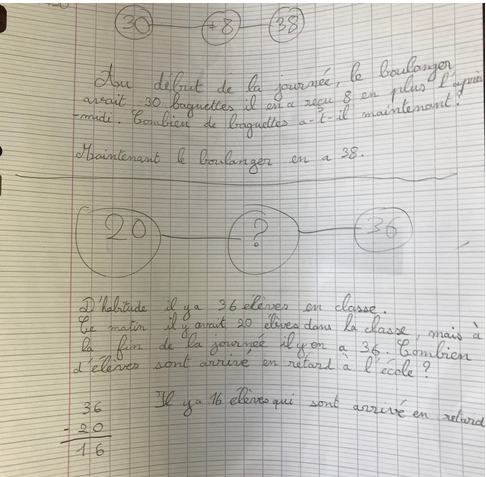 30 + 8 38
Au début de la journée, le boulanger
avait 30 baguettes il en a reçu 8 en plus l'après
-midi. Combien de baguettes a-t-il maintenant?
Maintenant le boulanger en a 38.
20 ? 36
D'habitude il y a 36 élèves en classe.
Ce matin il y avait 20 élèves dans la classe, mais à
la fin de la journée il y en a 36. Combien
d'élèves sont arrivé en retard à l'école ?
36 Il y a 16 élèves qui sont arrivé en retard
- 20
16